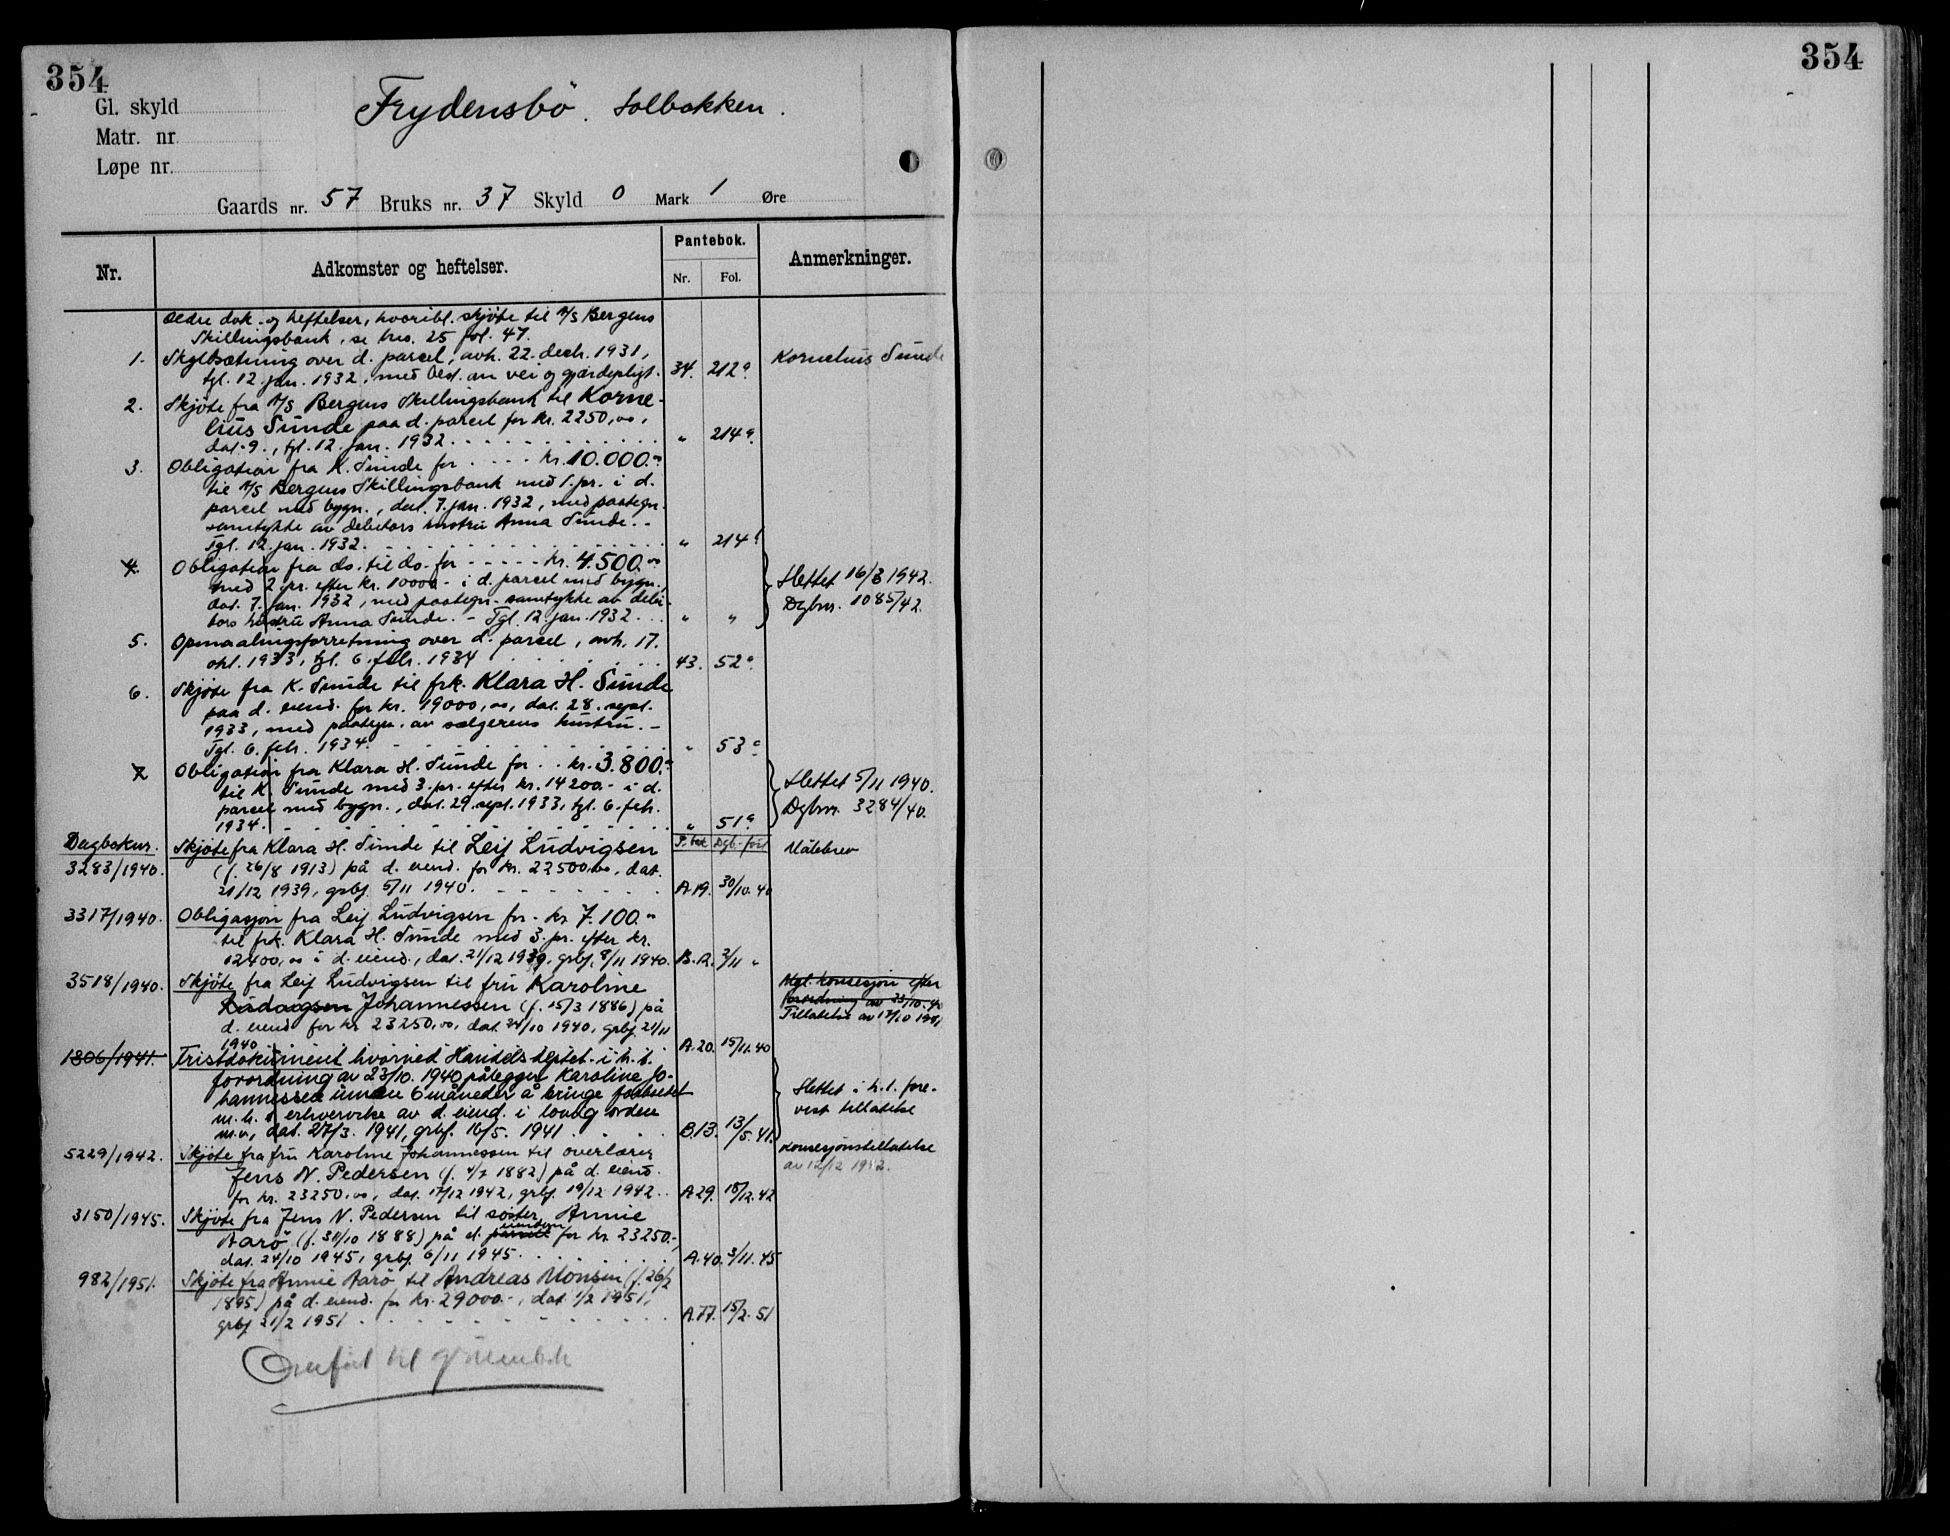 354
354
Gl. skyld
Frydensbö. Solbakken.
Matr. nr.
Løpe nr.
Gaards nr. 57 Bruks nr. 37 Skyld 0 Mark 1 Øre
Nr.
Adkomster og heftelser.
Pantebok.
Nr. Fol.
Anmerkninger.
Ældre dok. og heftelser, hvoribl. skjöte til A/S Bergens
Skillingsbank, se bno. 25 fol. 47.
1. Skyldsætning over d. parcel, avh. 22. decb. 1931,
tgl. 12. jan. 1932, med best. an vei og gjærdepligt. 34. 212a
Kornelius Sunde
2. Skjöte fra A/S Bergens Skillingsbank til Korne-
lius Sunde paa d. parcel for kr. 2250,00,
dat. 9., tgl. 12. jan. 1932. " 214a
3. Obligation fra K. Sunde for kr. 10.000.00
til A/S Bergens Skillingsbank med 1. pr. i d.
parcel med bygn., dat. 7. jan. 1932, med paategn.
samtykke av debitors hustru Anna Sunde. -
Tgl. 12. jan. 1932. " 214a
4. Obligation fra do. til do. for kr. 4.500.00
med 2. pr. efter kr. 10000.- i d. parcel med bygn.
dat. 7. jan. 1932, med paategn. samtykke av debi-
tors hustru Anna Sunde. - Tgl. 12. jan. 1932. " "
Slettet 16/3 1942.
Dgbnr. 1085/42.
5. Opmaalingsforretning over d. parcel, avh. 17.
okt. 1933, tgl. 6. febr. 1934 43. 52a
6. Skjöte fra K. Sunde til frk. Klara H. Sunde
paa d. eiend. for kr. 19000,00, dat. 28. sept.
1933, med paategn. av sælgerens hustru. -
Tgl. 6. febr. 1934. " 53a
7. Obligation fra Klara H. Sunde for kr. 3.800.-
til K. Sunde med 3. pr. efter kr. 14200.- i d.
parcel med bygn., dat. 29. sept. 1933, tgl. 6. febr.
1934. " 51a
Slettet 5/11 1940.
Dgbnr. 3284/40.
Dagboknr. Skjöte fra Klara H. Sunde til Leif Ludvigsen P. bok Dgb. ført Målebrev
3283/1940. (f. 26/8 1913) på d. eiend. for kr. 22500.00, dat.
21/12 1939, grbf. 5/11 1940. A.19. 30/10.40
3317/1940. Obligasjon fra Leif Ludvigsen for kr. 7.100.00
til frk. Klara H. Sunde med 3. pr. efter kr.
12400,00 i d. eiend., dat. 21/12 1939, grbf. 8/11 1940. B.12. 2/11 "
3518/1940. Skjöte fra Leif Ludvigsen til fru Karoline
Ludvigsen Johannessen (f. 15/3 1886) på
d. eiend for kr 23250,00, dat. 24/10 1940, grbf. 21/11
1940. A.20. 15/11.40
Mgl. konsesjon efter
forordning av 23/10.40
Tillatelse av 17/10 1941
1806/1941. Fristdokument hvorved Handelsdeptet i h. t.
forordning av 23/10. 1940 pålegger Karoline Jo-
hannessen innen 6 måneder å bringe forholdet
m. h. t. erhvervelse av d. eiend. i lovlig orden
m.v., dat. 27/3. 1941, grbf. 16/5. 1941. B.13. 13/5.41.
Slettet i h. t. fore-
vist tillatelse
5229/1942. Skjöte fra fru Karoline Johannessen til overlærer
Jens N. Pedersen (f. 4/7 1882) på d. eiend.
for kr. 23250,00, dat. 17/12 1942, grbf. 19/12 1942. A.29. 18/12.42
Konsesjonstillatelse
av 12/12 1942.
3150/1945. Skjöte fra Jens N. Pedersen til söster, Annie
Aarö (f. 30/10 1888) på d. parcell eiendom for kr. 23250.-,
dat. 24/10 1945, grbf. 6/11 1945. A.40. 3/11.45
982/1951. Skjöte fra Annie Aarö til Andreas Monsen (f. 26/2
1895) på d. eiend. for kr. 29000.-, dat. 1/2 1951,
grbf 21/2 1951 A.77. 15/2.51
Overført til grunnbok